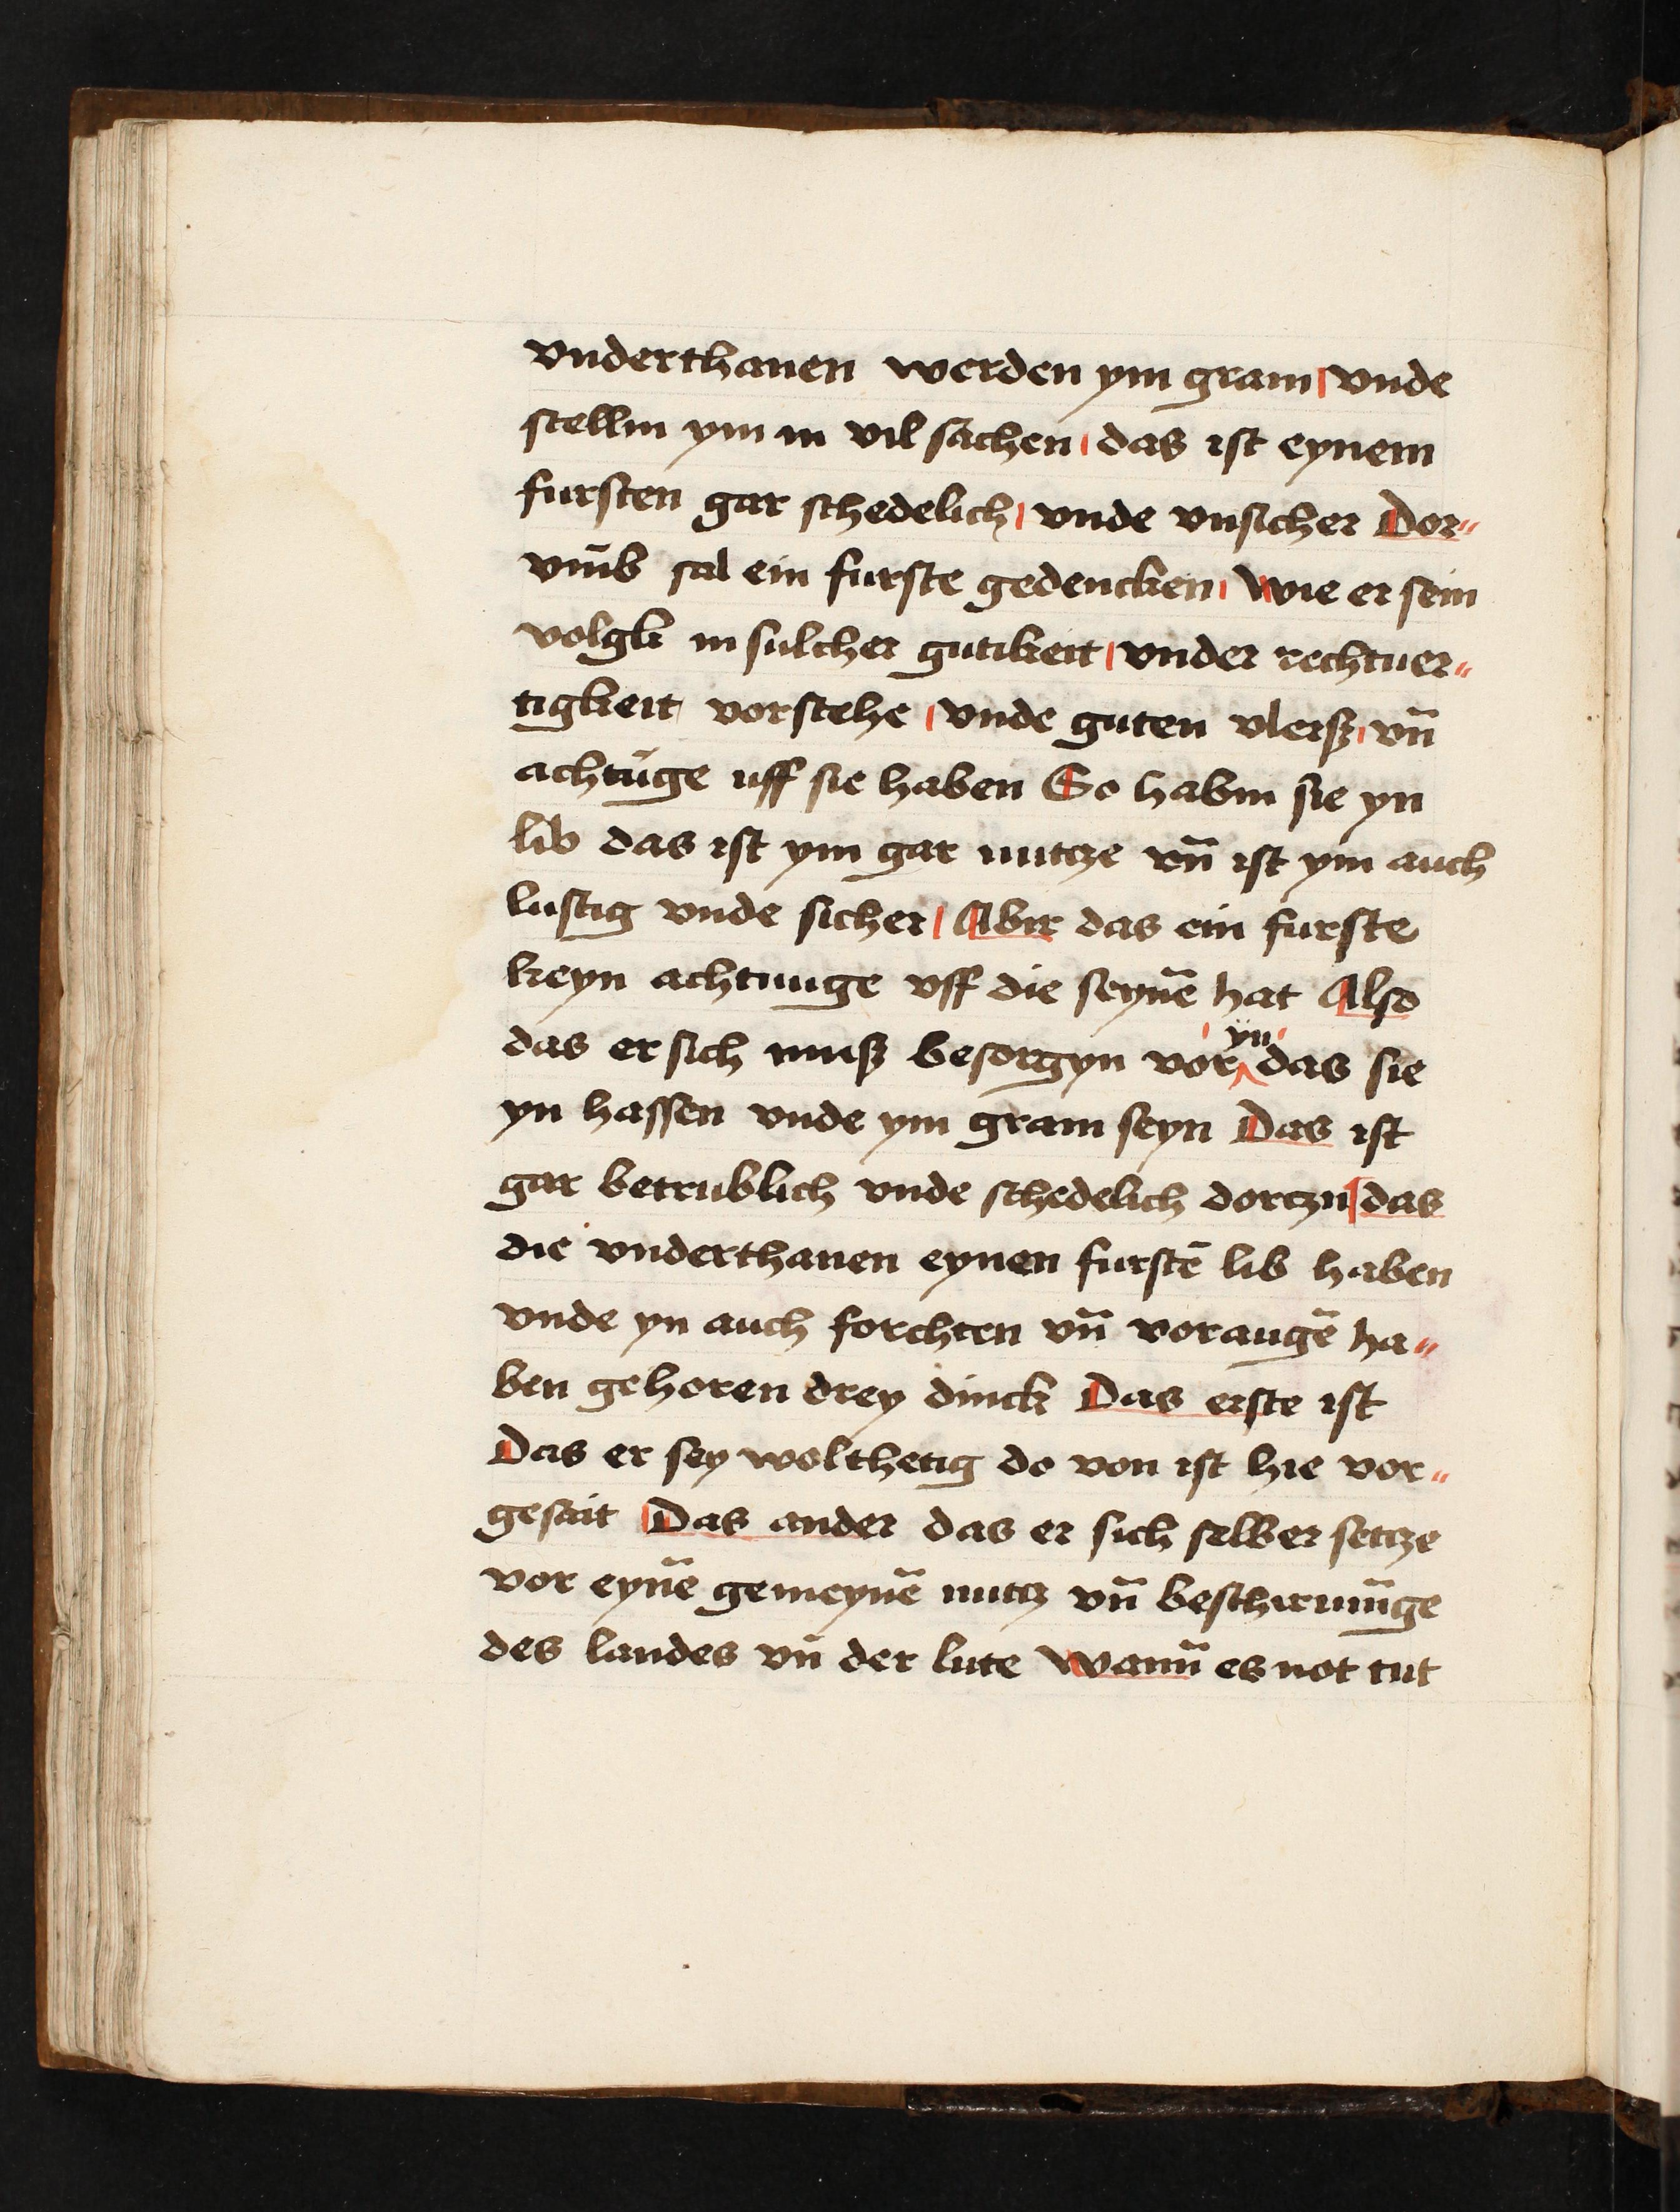 vnderthanen werden ym gram | vnde
stellin ym in vil sachen | das ist eynem
fursten gar schedelich | vnde vnsicher Dor„
vm̄b sal ein furste gedencken | Wie er sein
volgk in sulcher gutikeit | vnder rechtuer„
tigkeit vorstehe | vnde guten vleisz | vn̄
achtūge uff sie haben So habin sie yn
lib das ist ym gar nutcze vn̄ ist ym auch
lustig vnde sicher | Abir das ein furste
keyn achtunge vff die seynē hat Also
das er sich musz besorgyn vor yn das sie
yn hassen vnde ym gram seyn Das ist
gar betrublich vnde schedelich dorczu | das
die vnderthanen eynen furstē lib haben
vnde yn auch forchten vn̄ vor augē ha„
ben gehoren drey dinck Das erste ist
Das er sey wolthetig do von ist hie vor„
gesait | Das ander das er sich selber setcze
vor eynē gemeynē nutcz vn̄ beschirmūge
des landes vn̄ der lute Wann̄ es not tut